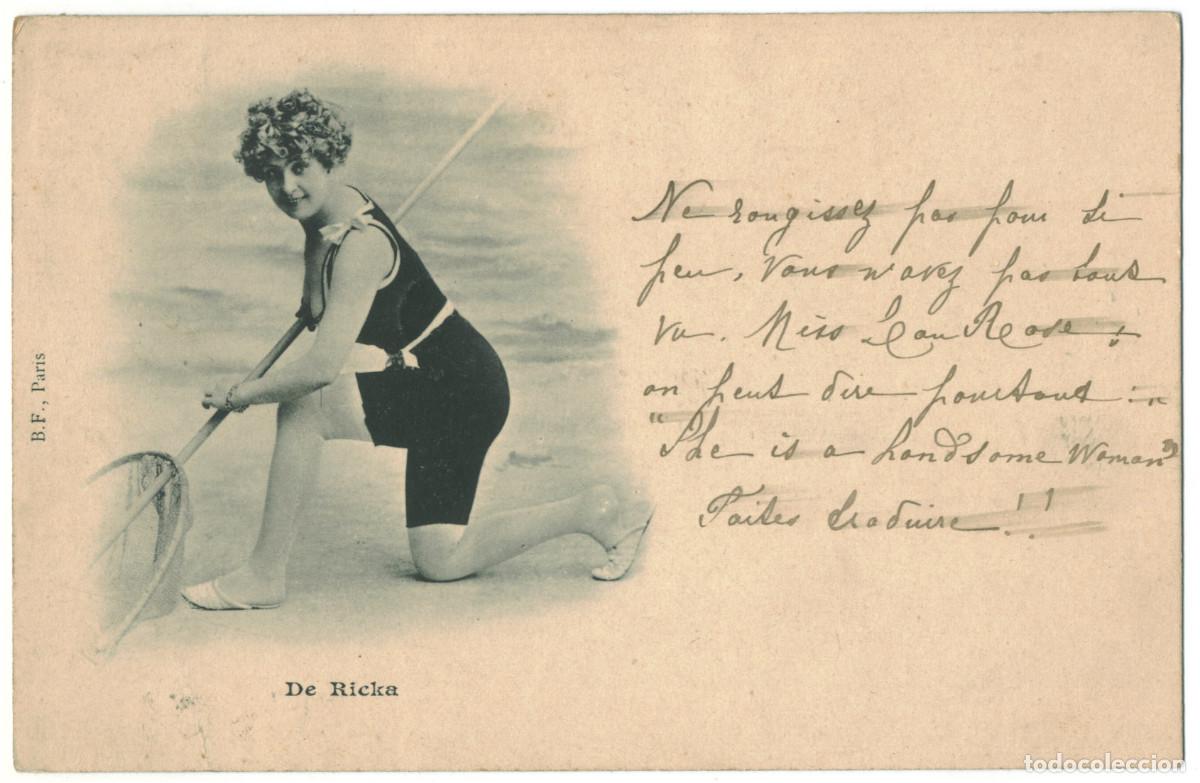 Ne rougissez pas pour si
peu, vous n'avez pas tout
vu. Miss
on peut dire pourtant :
"She is a handsome Woman"
Faites traduire !!
B.F., Paris
De Ricka
todocoleccion